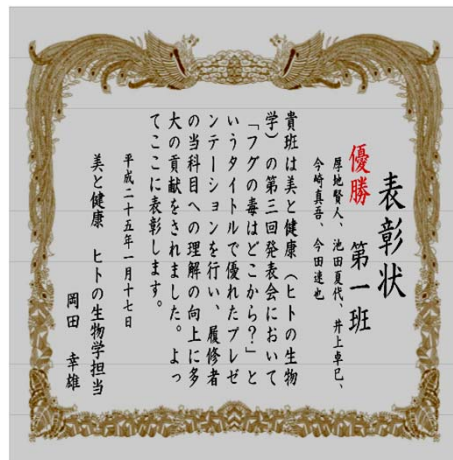 表彰状
優勝 第一班
厚地賢人、池田夏代、井上卓巳、
今崎真吾、今田達也
貴班は美と健康(ヒトの生物
学)の第三回発表会において
「フグの毒はどこから?」と
いうタイトルで優れたプレゼ
ンテーションを行い、履修者
の当科目への理解の向上に多
大の貢献をされました。よっ
てここに表彰します。
平成二十五年一月十七日
美と健康 ヒトの生物学担当
岡田 幸雄